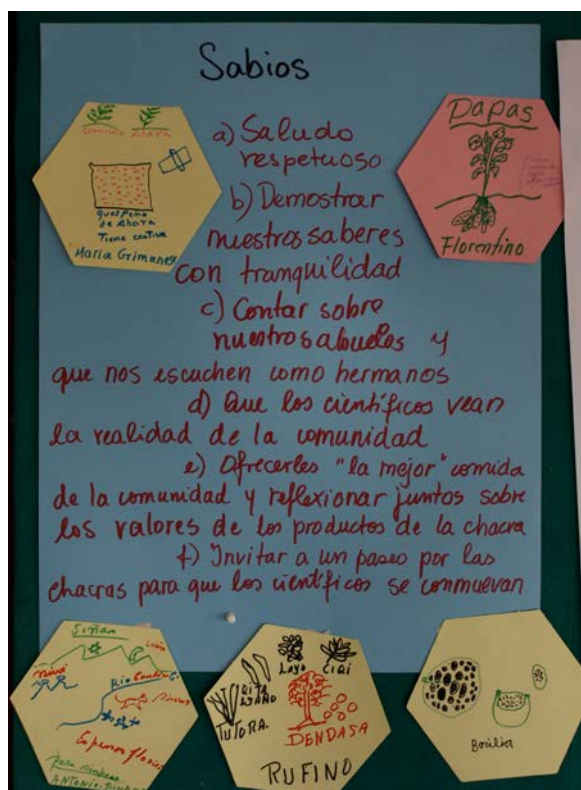 Sabios
a) Saludo
respetuoso
b) Demostrar
nuestros saberes
con tranquilidad
c) Contar sobre
nuestros abuelos y
que nos escuchen como hermanos
d) Que los científicos vean
la realidad de la comunidad
e) Ofrecerles "la mejor" comida
de la comunidad y reflexionar juntos sobre
los valores de los productos de la chacra
f) Invitar a un paseo por las
chacras para que los científicos se conmuevan
de Ahara
Tiene
Maria
Papas
Florentino
Layo
CIRI
TUTORA
DENDASA
RUFINO